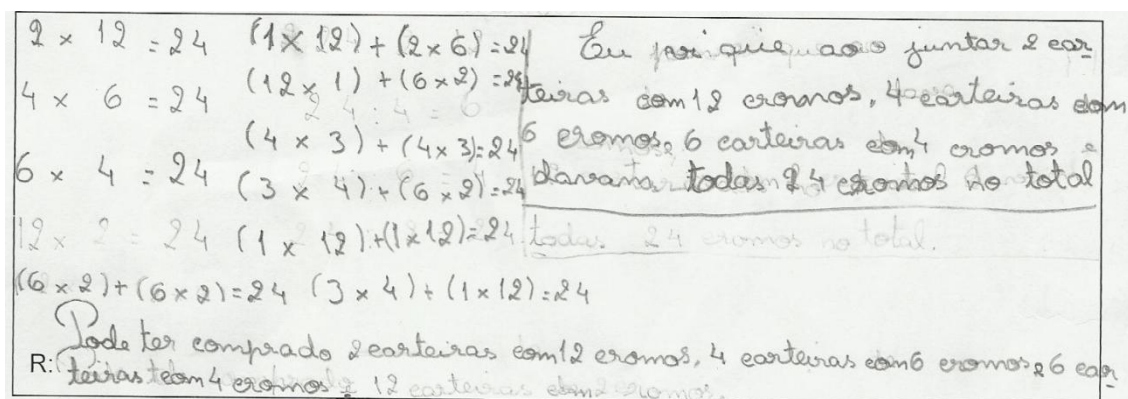 2 × 12 = 24
4 × 6 = 24
6 × 4 = 24
12 × 2 = 24
(6 × 2) + (6 × 2) = 24
(1 × 12) + (2 × 6) = 24
(12 × 1) + (6 × 2) = 24
(4 × 3) + (4 × 3) = 24
(3 × 4) + (6 × 2) = 24
(1 × 12) + (1 × 12) = 24
(3 × 4) + (1 × 12) = 24
Eu que ao juntar 2 car-
teiras com 12 cromos, 4 carteiras com
6 cromos, 6 carteiras com 4 cromos e
davam todas 24 cromos no total
todas 24 cromos no total.
Pode ter comprado 2 carteiras com 12 cromos, 4 carteiras com 6 cromos e 6 car-
R: teiras com 4 cromos e 12 carteiras com 2 cromos.